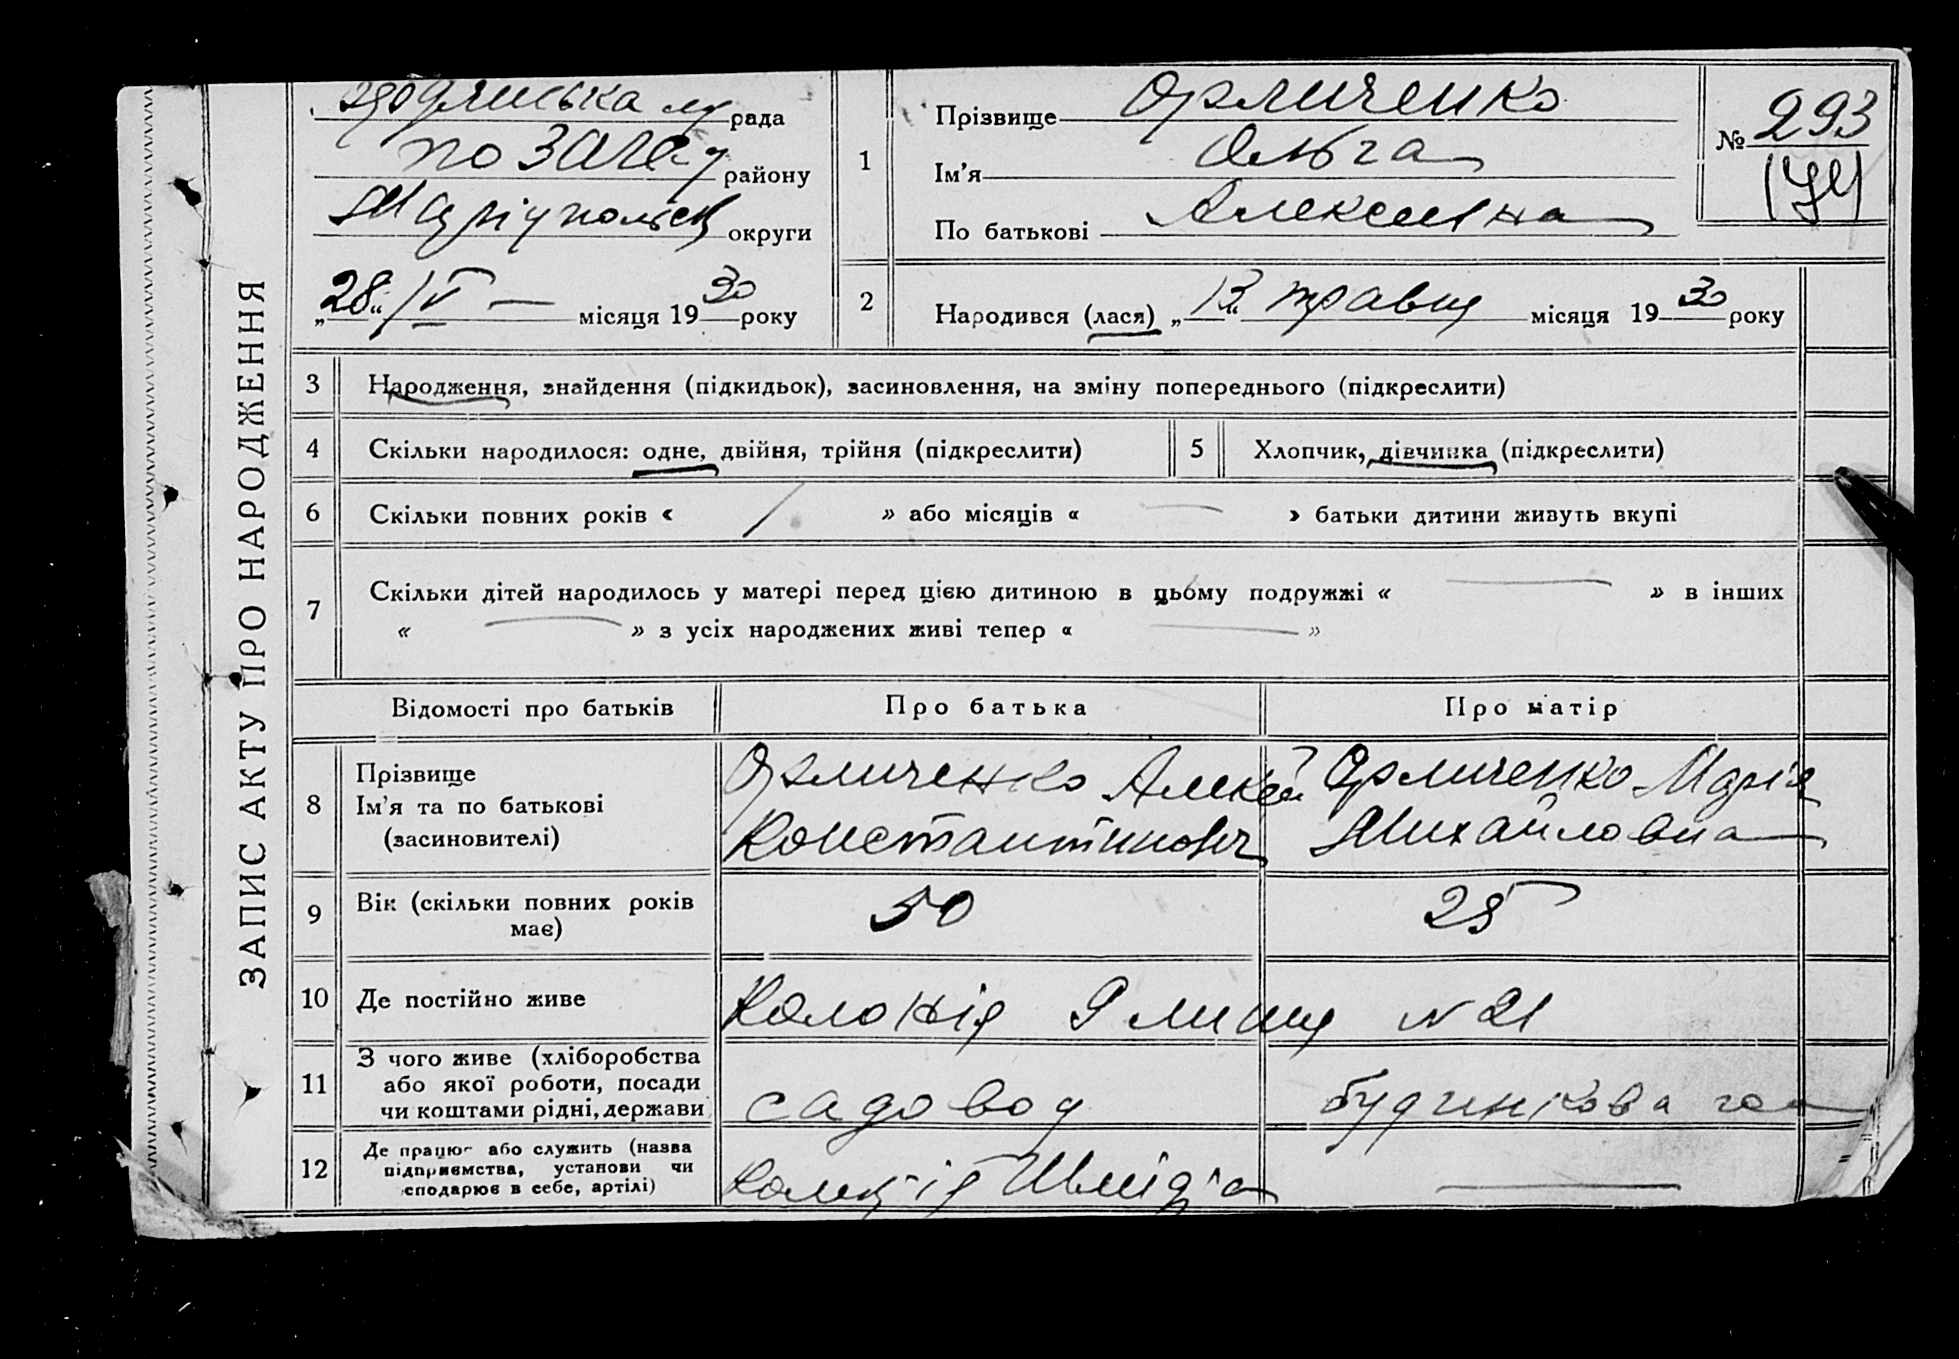 ЗАПИС АКТУ ПРО НАРОДЖЕННЯ
рада
району
округи
„28“ /V — місяця 1930 року
1
Прізвище Орличенко
Ім'я Ольга
По батькові Алексеівна
№ 293
2
Народився (лася) „13“ травня місяця 1930 року
3 Народження, знайдення (підкидьок), засиновлення, на зміну попереднього (підкреслити)
4 Скільки народилося: одне, двійня, трійня (підкреслити) 5 Хлопчик, дівчинка (підкреслити)
6 Скільки повних років « / » або місяців « — » батьки дитини живуть вкупі
7 Скільки дітей народилось у матері перед цією дитиною в цьому подружжі « — » в інших
« — » з усіх народжених живі тепер « — »
Відомості про батьків Про батька Про матір
8
Прізвище
Ім'я та по батькові
(засиновителі)
Орличенко Алексей
Константинович
Орличенко Марія
Михайловна
9 Вік (скільки повних років
має)
50 25
10 Де постійно живе Колонія № 21
11
З чого живе (хліборобства
або якої роботи, посади
чи коштами рідні, держави
садовод будинкова гос
12
Де працює або служить (назва
підприємства, установи чи
сподарює в себе, артілі)
—